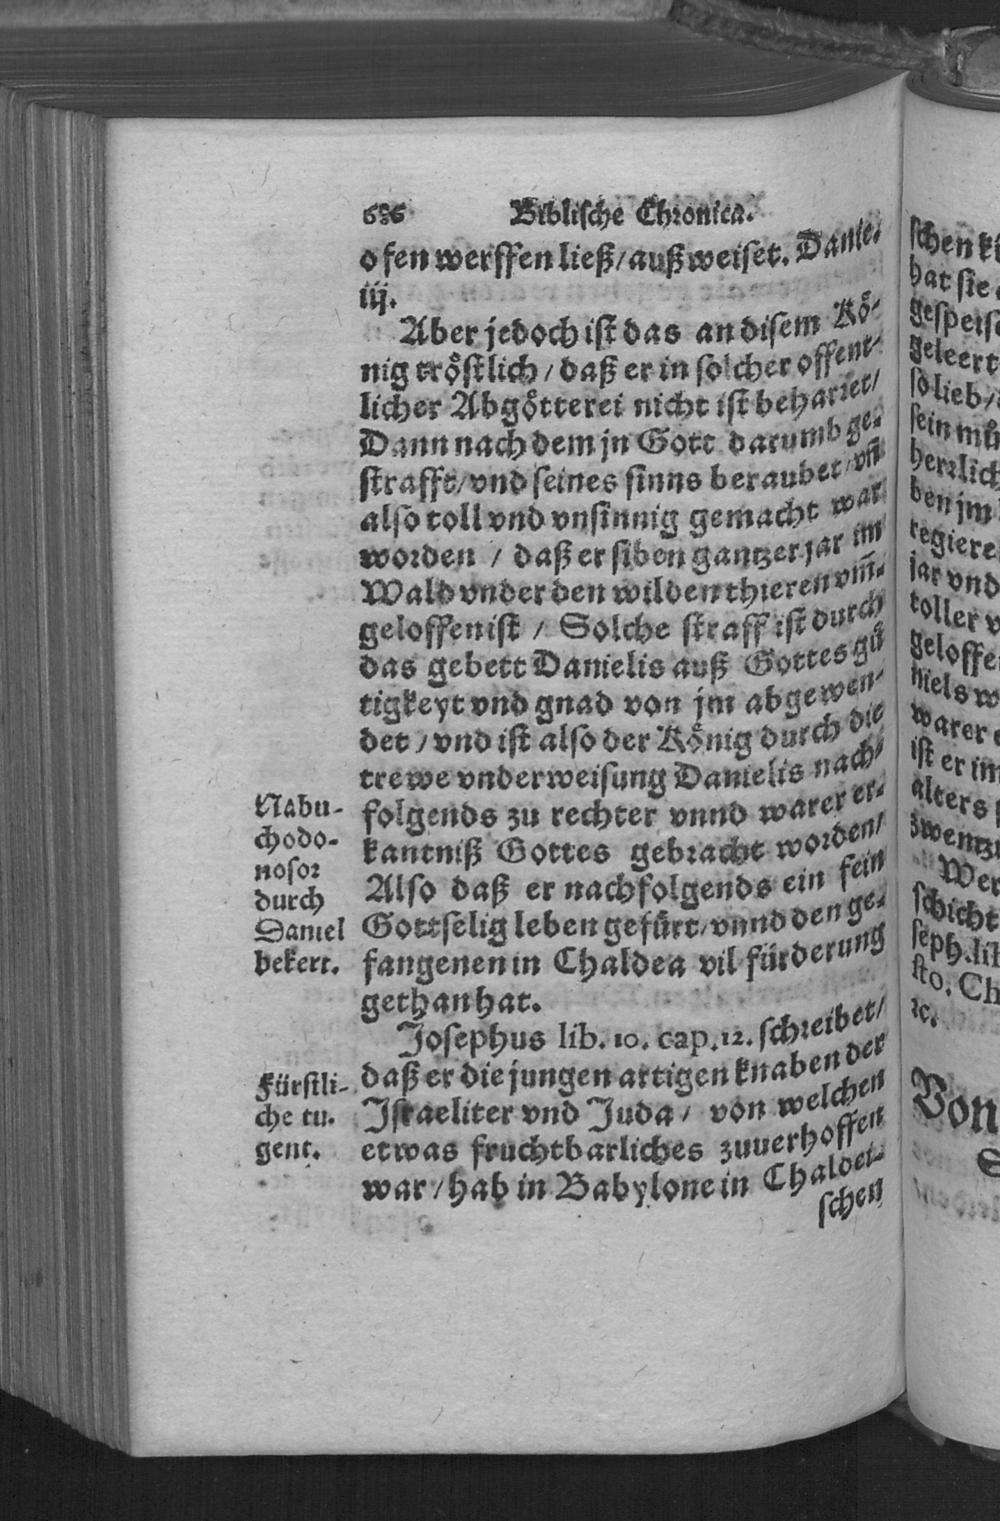 686 Biblische Chronica.
ofen werffen ließ/ außweiset. Danie.
iij.
Aber jedoch ist das an disem Kö-
nig tröstlich / daß er in solcher offent-
licher Abgötterei nicht ist beharret/
Dann nach dem jn Gott darumb ge-
strafft/ vnd seines sinns beraubet/ vñ
also toll vnd vnsinnig gemacht war
worden / daß er siben gantzer jar im
Wald vnder den wilden thieren vm̃-
geloffen ist / Solche straff ist durch
das gebett Danielis auß Gottes gü
tigkeyt vnd gnad von jm abgewen-
det / vnd ist also der König durch die
trewe vnderweisung Danielis nach-
folgends zu rechter vnnd warer er-
kantniß Gottes gebracht worden/
Also daß er nachfolgends ein fein
Gottselig leben gefürt/ vnnd den ge-
fangenen in Chaldea vil fürderung
gethan hat.
Josephus lib. 10. cap. 12. schreibet/
daß er die jungen artigen knaben der
Israeliter vnd Juda / von welchen
etwas fruchtbarliches zuuerhoffen
war / hab in Babylone in Chaldei-
schen
Nabu-
chodo-
nosor
durch
Daniel
bekert.
Fürstli-
che tu.
gent.
schen
hat sie
gespeis
geleert
so lieb/
sein
hertzlich
ben jm
regiere
jar vnd
toller v
geloffe
niels w
warer
ist er im
alters
zwentzi
Wer
schicht
seph. lib
sto. Ch
ꝛc.
Von
S